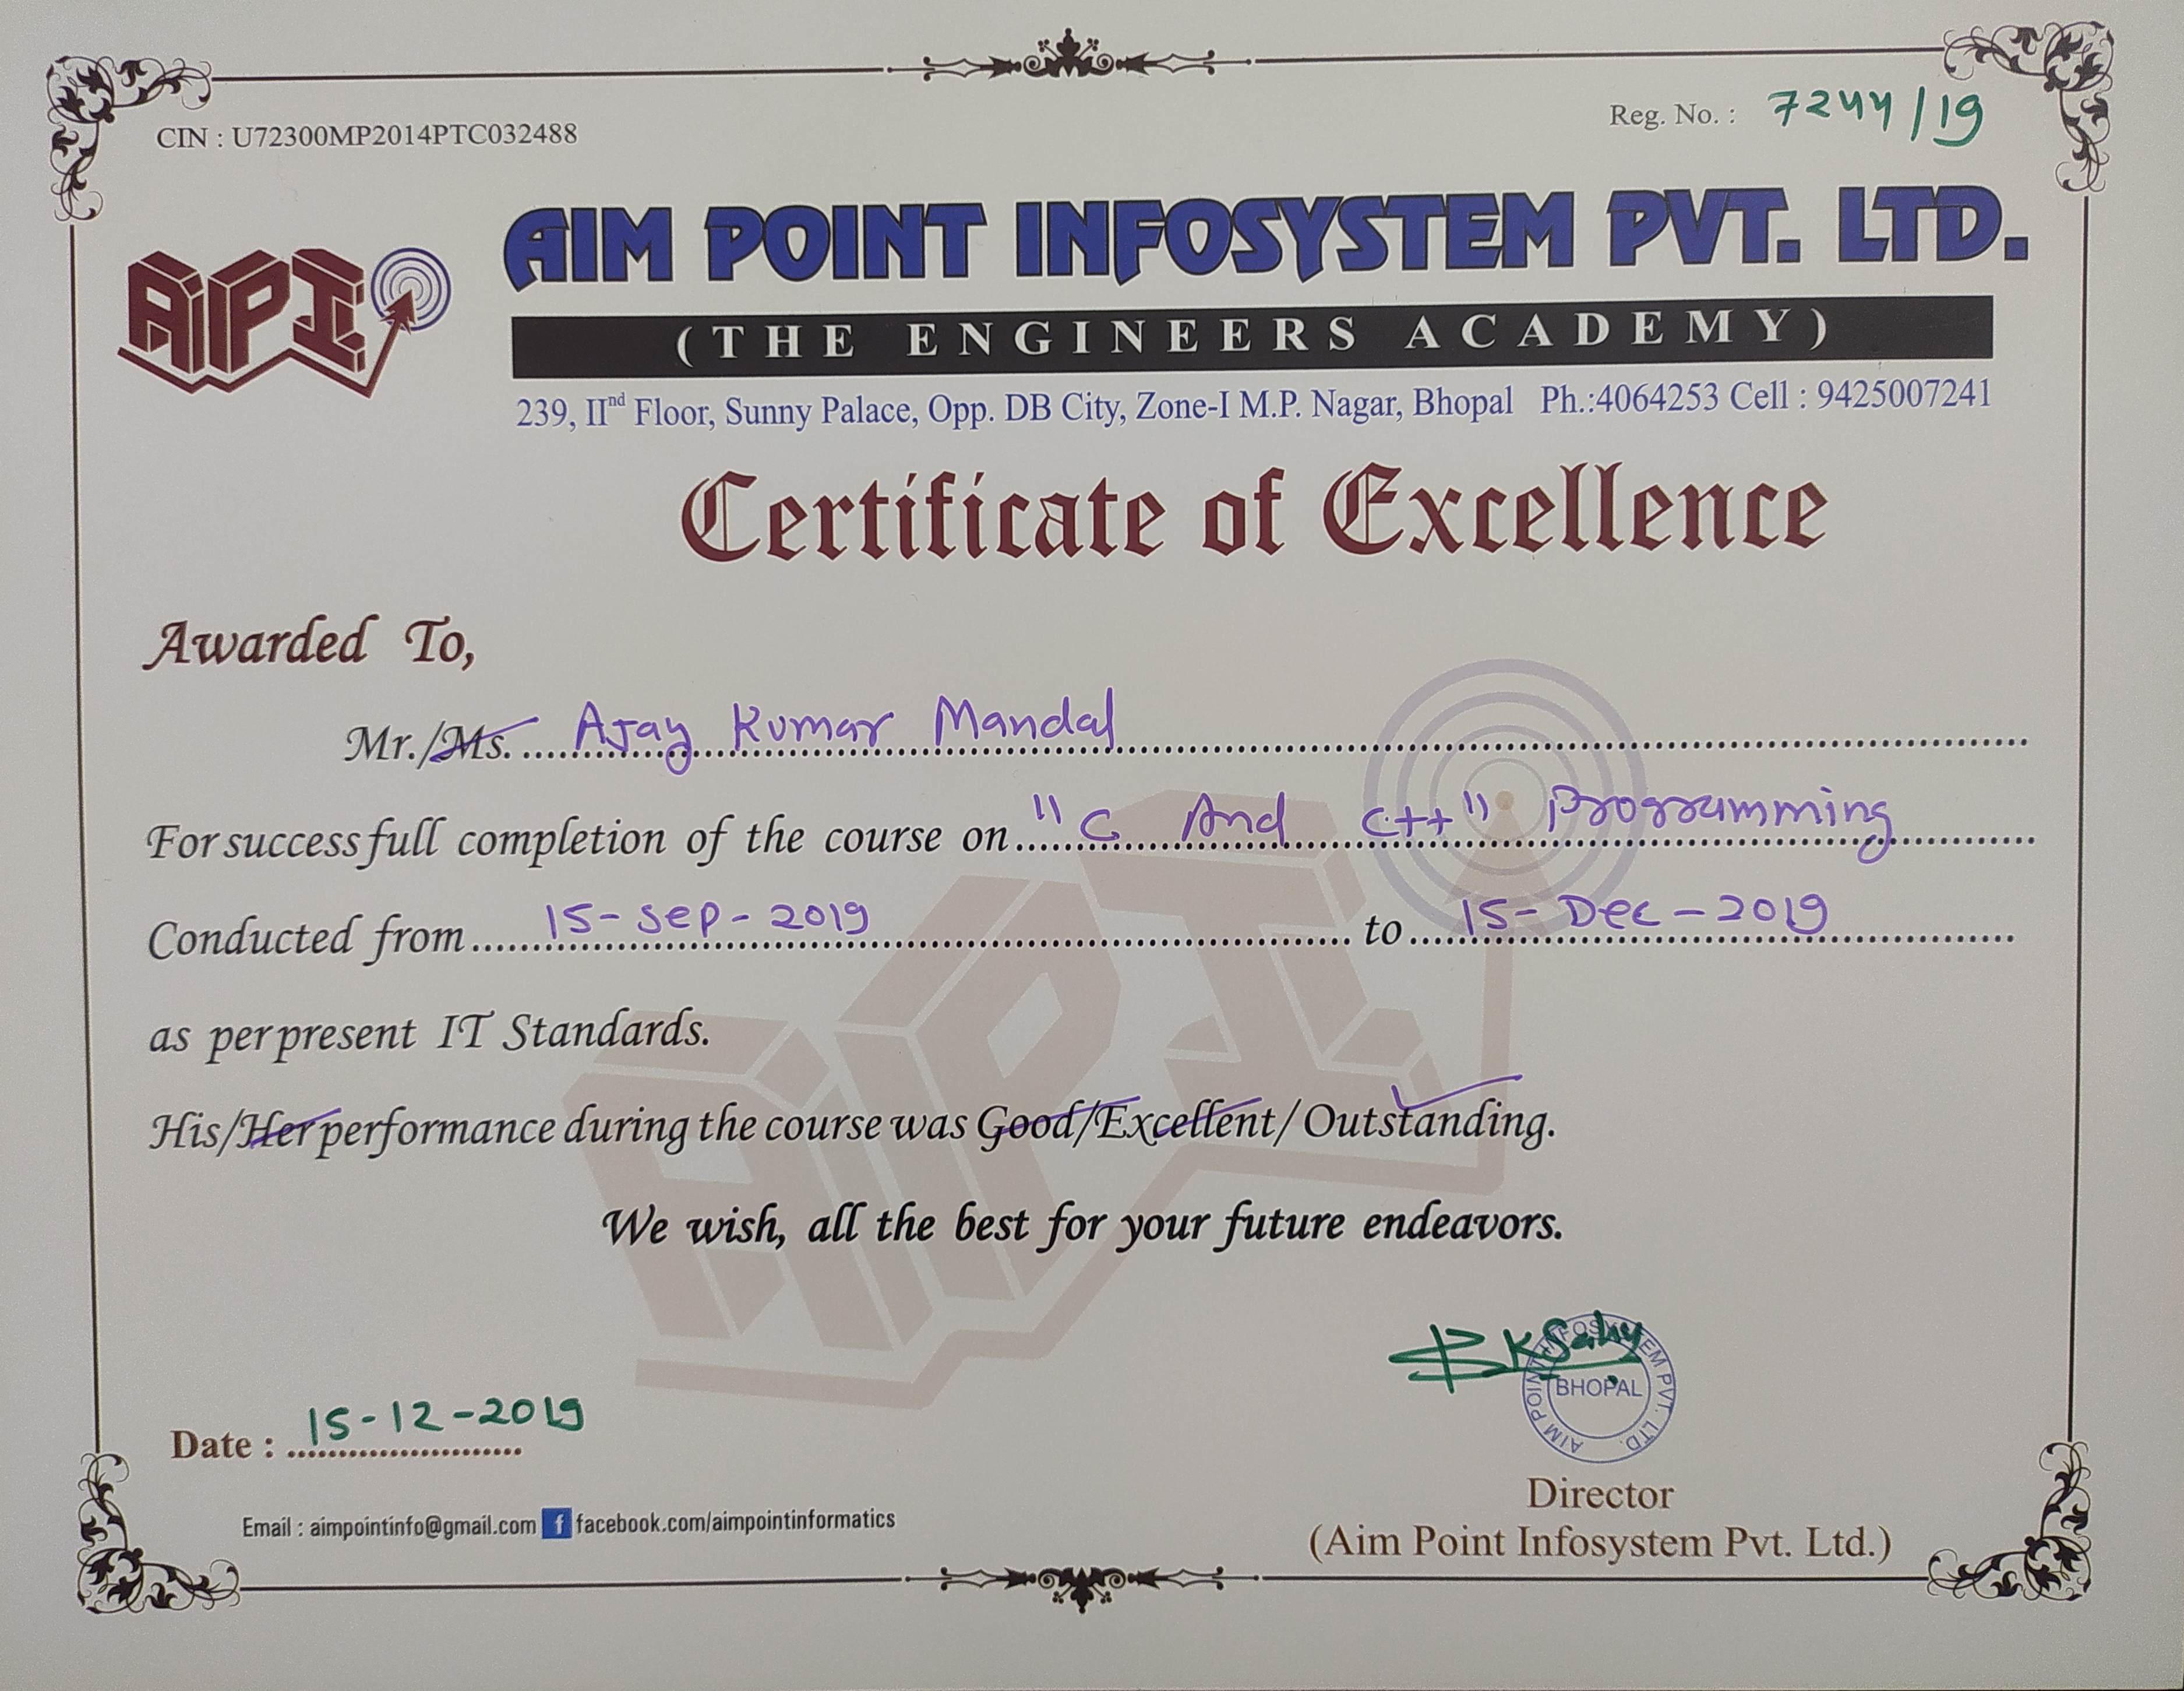 CIN : U72300MP2014PTC032488
Reg. No. : 7244/19
AIPI
AIM POINT INFOSYSTEM PVT. LTD.
(THE ENGINEERS ACADEMY)
239, IInd Floor, Sunny Palace, Opp. DB City, Zone-I M.P. Nagar, Bhopal Ph.:4064253 Cell : 9425007241
Certificate of Excellence
Awarded To,
Mr./Ms. Ajay Kumar Mandal
For successfull completion of the course on "C And C++" Programming
Conducted from 15-Sep-2019 to 15-Dec-2019
as per present IT Standards.
His/Her performance during the course was Good/Excellent/Outstanding.
We wish, all the best for your future endeavors.
BKSahy
AIM POINT INFOSYSTEM PVT. LTD.
BHOPAL
Date : 15-12-2019
Director
(Aim Point Infosystem Pvt. Ltd.)
Email : aimpointinfo@gmail.com f facebook.com/aimpointinformatics